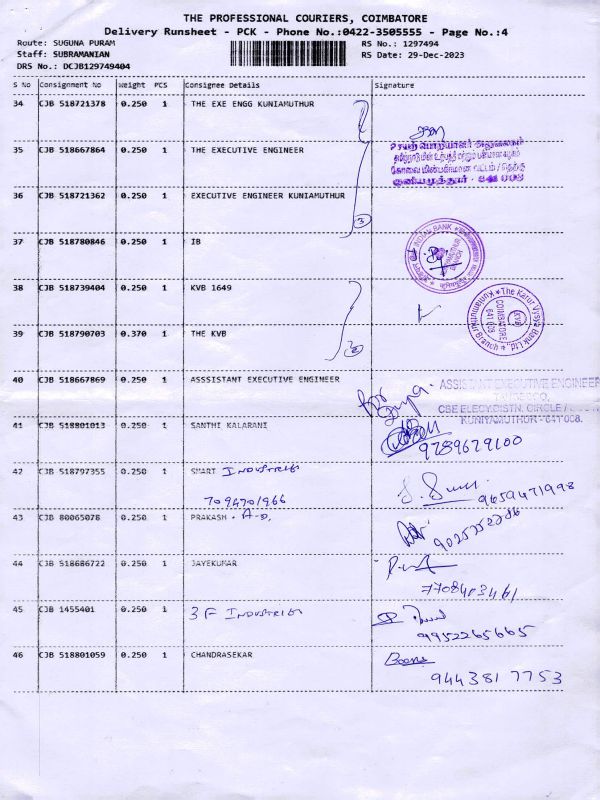 THE PROFESSIONAL COURIERS, COIMBATORE
Delivery Runsheet - PCK - Phone No.:0422-3505555 - Page No.:4
Route: SUGUNA PURAM
RS No.: 1297494
Staff: SUBRAMANIAN
RS Date: 29-Dec-2023
DRS No.: DCJB129749404
S No Consignment No Weight PCS Consignee Details Signature
34 CJB 518721378 0.250 1 THE EXE ENGG KUNIAMUTHUR
35 CJB 518667864 0.250 1 THE EXECUTIVE ENGINEER
36 CJB 518721362 0.250 1 EXECUTIVE ENGINEER KUNIAMUTHUR
3
37 CJB 518780846 0.250 1 IB
INDIAN BANK
38 CJB 518739404 0.250 1 KVB 1649
The Karur Vysya Bank Ltd.
Kuniamuthur Branch
KVB
COIMBATORE
641 008
39 CJB 518790703 0.370 1 THE KVB
2
40 CJB 518667869 0.250 1 ASSSISTANT EXECUTIVE ENGINEER
ASSISTANT EXECUTIVE ENGINEER
CBE ELECY.DISTN. CIRCLE /
KUNIYAMUTHUR - 641 008.
41 CJB 518801013 0.250 1 SANTHI KALARANI
9789679100
42 CJB 518797355 0.250 1 SMART INDUSTRIES
7094701966
9659471998
43 CJB 80065078 0.250 1 PRAKASH . A-D,
44 CJB 518686722 0.250 1 JAYEKUMAR
45 CJB 1455401 0.250 1 3 F INDUSTRIES
9952265665
46 CJB 518801059 0.250 1 CHANDRASEKAR
944381 7753